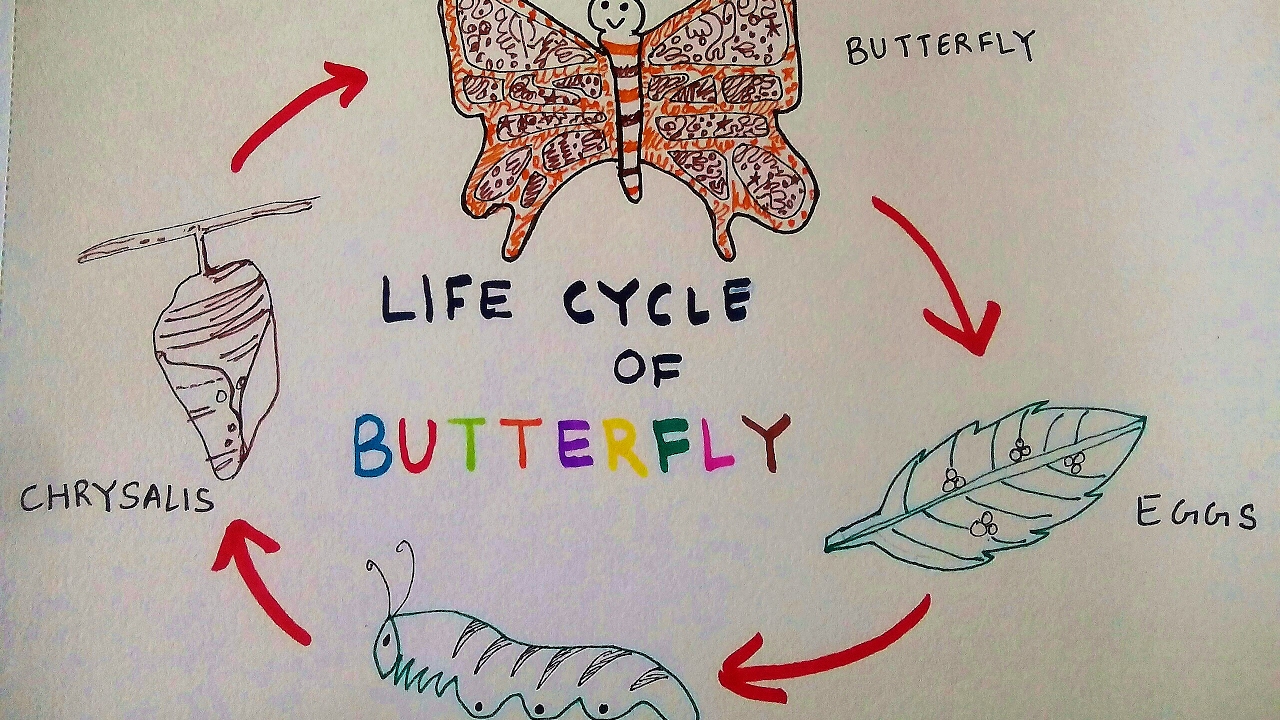 BUTTERFLY
LIFE CYCLE
OF
BUTTERFLY
EGGS
CHRYSALIS